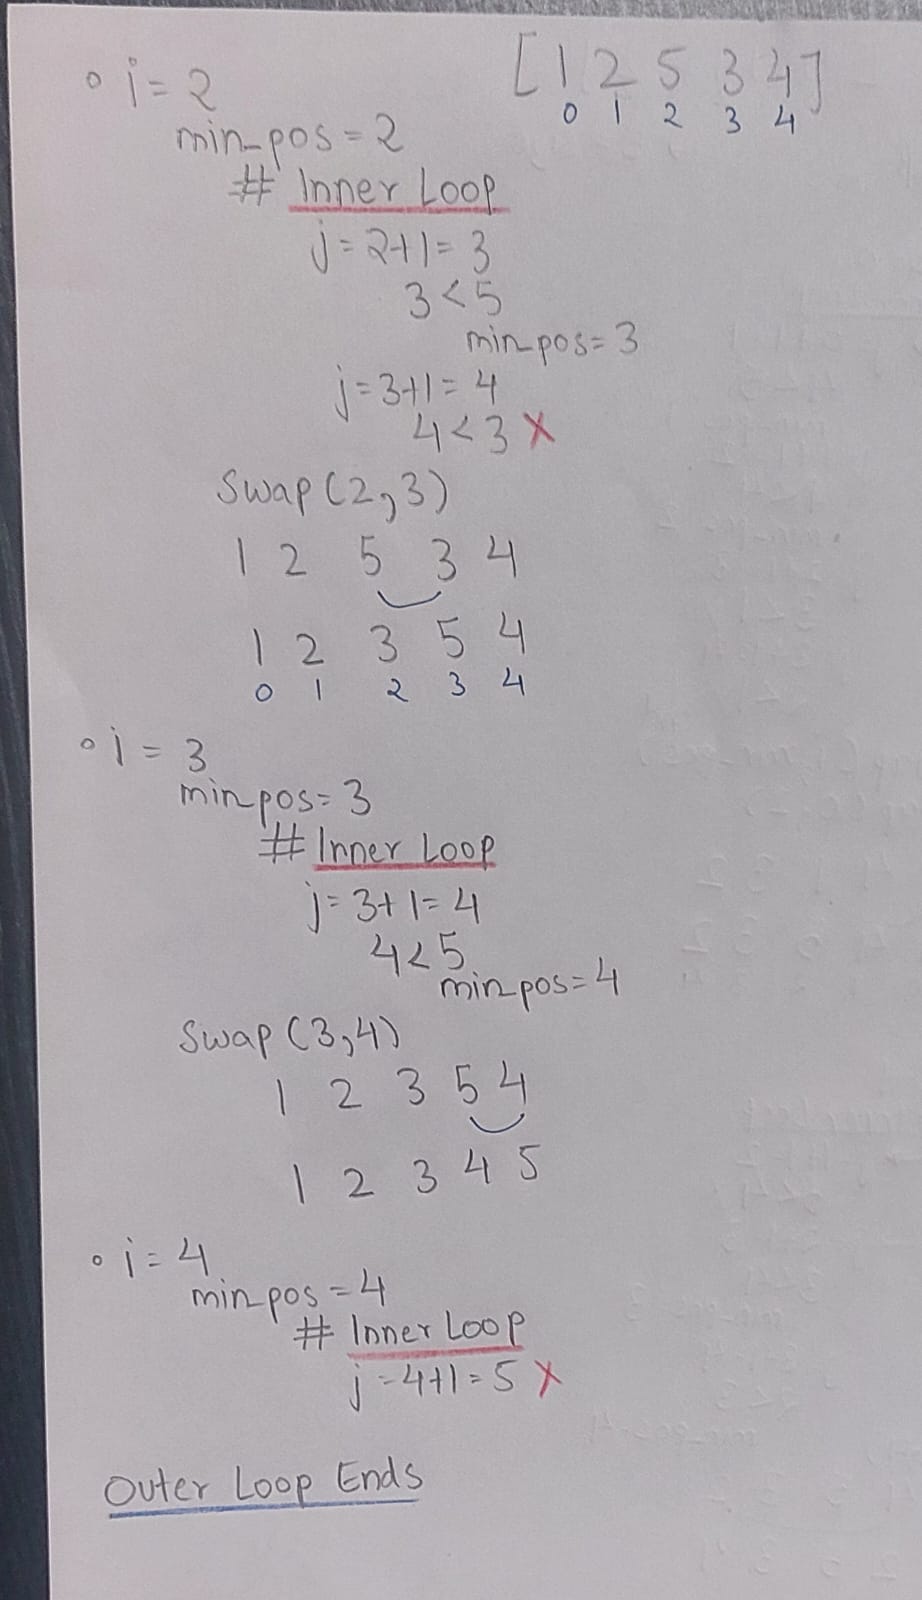 [1 2 5 3 4]
0 1 2 3 4
∘ i = 2
min_pos = 2
# Inner Loop
j = 2+1 = 3
3 < 5
min_pos = 3
j = 3+1 = 4
4 < 3 X
Swap (2,3)
1 2 5 3 4
1 2 3 5 4
0 1 2 3 4
∘ i = 3
min_pos = 3
# Inner Loop
j = 3+1 = 4
4 < 5
min_pos = 4
Swap (3,4)
1 2 3 5 4
1 2 3 4 5
∘ i = 4
min_pos = 4
# Inner Loop
j = 4+1 = 5 X
Outer Loop Ends